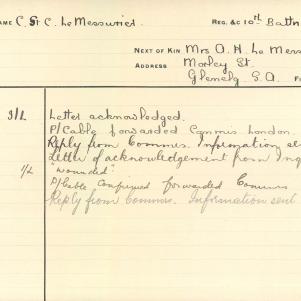 NAME C. St C. Le Messurier REG. &C 10th Battn
NEXT OF KIN Mrs A. H. Le Mess
ADDRESS Moxley St.
Glenelg S.A.
3/2 Letter acknowledged.
P/Cable forwarded Commrs London.
Reply from Commrs. Information se
Letter of acknowledgement from Inq
1/2 "wounded"
P/Cable confirmed forwarded Commrs
Reply from Commrs. Information sent